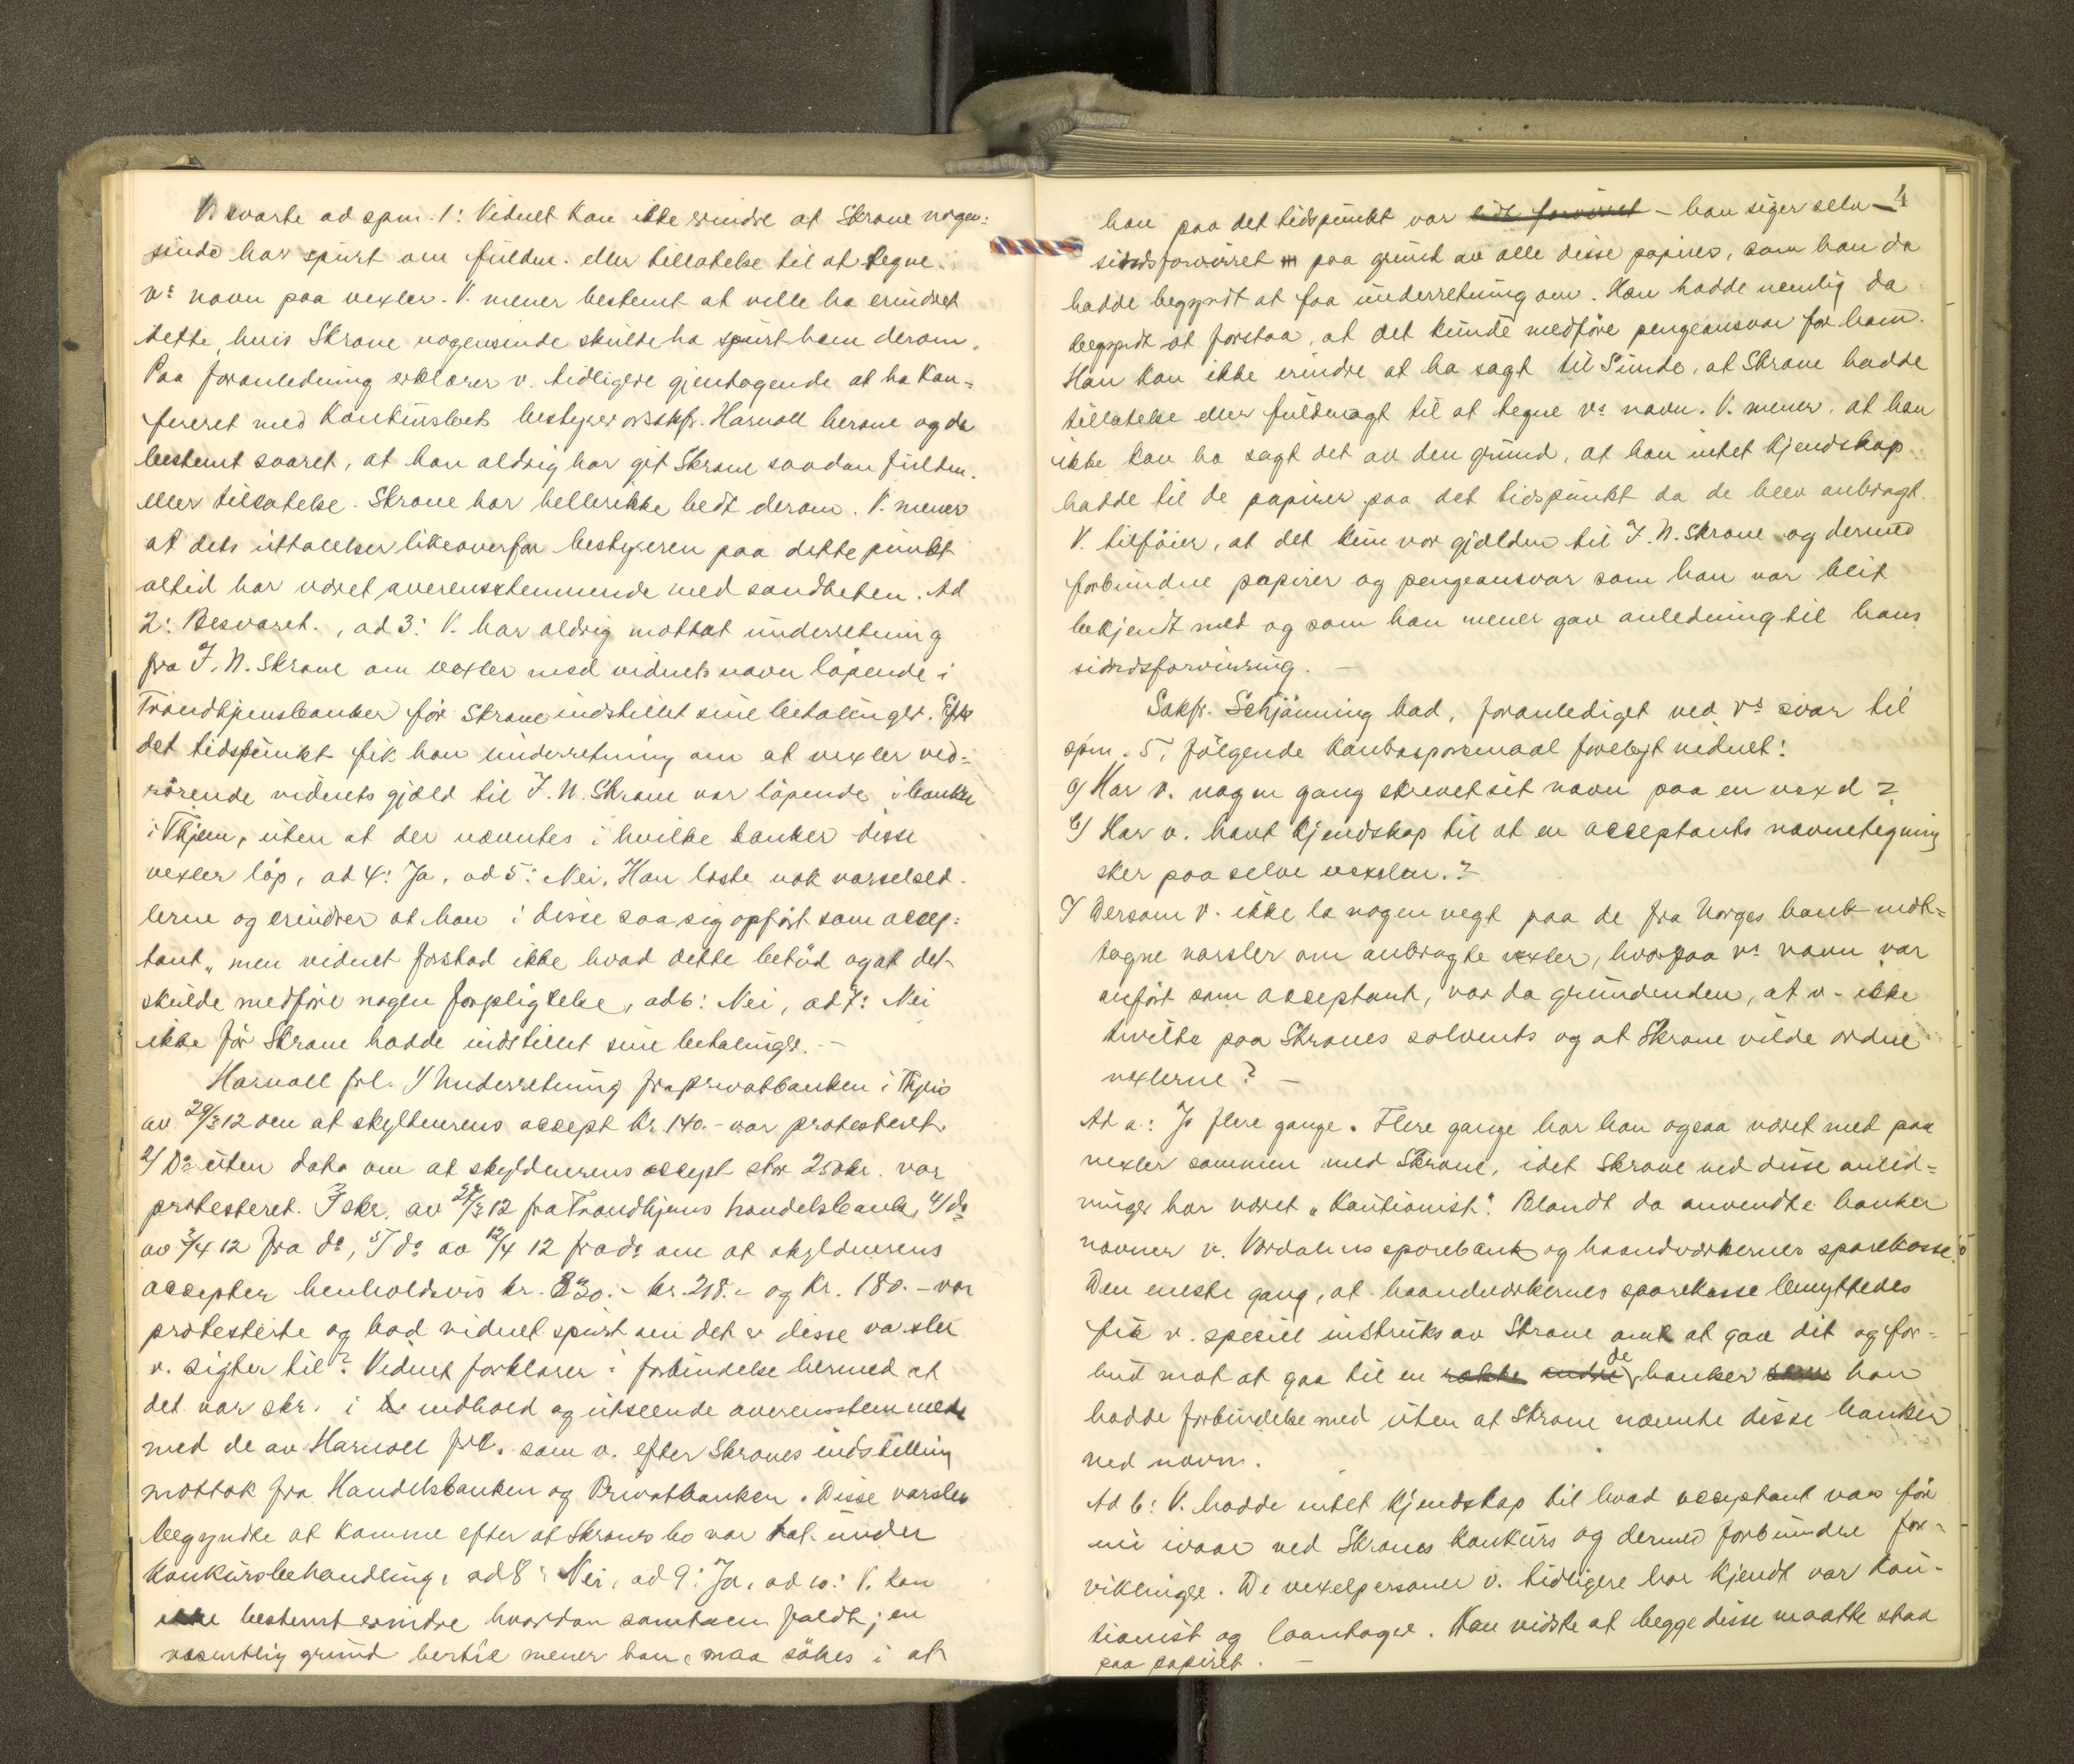 V. svarte ad spm. 1: Vidnet kan ikke erindre at Skrove nogen=
sinde har spurt om fuldm. eller tillatelse til at tegne
vs navn paa vexler. V. mener bestemt at ville ha erindret
dette, hvis Skrove nogensinde skulde ha spurt ham derom.
Paa foranledning erklærer v. tidligere gjentagende at ha kon=
fereret med konkursboets bestyrer orsakfr. Harvoll herom og da
bestemt svaret, at han aldrig har git Skrove saadan fuldm.
eller tillatelse. Skrove har hellerikke bedt derom. V. mener
at dets uttalelser likeoverfor bestyreren paa dette punkt
altid har været overensstemmende med sandheten. Ad
2: Besvaret., ad 3: V. har aldrig mottat underretning
fra J. N. Skrove om vexler med vidnets navn løpende i
Trondhjemsbanker før Skrove indstillet sine betalinger. Efter
det tidspunkt fik han underretning om at vexler ved=
rørende vidnets gjæld til J. N. Skrove var løpende i banker
i Thjem, uten at der nævntes i hvilke banker disse
vexler løp, ad 4: Ja, ad 5: Nei, Han læste nok varselsed=
lerne og erindrer at han i disse saa sig opført som accep=
tant, men vidnet forstod ikke hvad dette betød og at det
skulde medføre nogen forpligtelse, ad 6: Nei, ad 7: Nei
ikke før Skrove hadde indstillet sine betalinger. –
Harvoll frl. 1/ Underretning fra Privatbanken i Thjem
av 29/3 12 om at skyldnerens accept kr. 140.- var protesteret.
2/ Do uten dato om at skyldnerens accept stor 250 kr. var
protesteret. 3/ skr. av 27/3 12 fra Trondhjems handelsbank, 4/ do
av 3/4 12 fra do, 5/ do av 12/4 12 fra do om at skyldnerens
accepter henholdsvis kr. 830.- kr. 218.- og kr. 180.- var
protesterte og bad vidnet spurt om det er disse varsler
v. sigter til? Vidnet forklarer i forbindelse hermed at
det var skr. i indhold og utseende overensstemmende
med de av Harvoll frl. som v. efter Skroves indstilling
mottok fra Handelsbanken og Privatbanken. Disse varsler
begyndte at komme efter at Skroves bo var tat under
konkursbehandling, ad 8: Nei, ad 9: Ja, ad 10: V. kan
ikke bestemt erindre hvordan samtalen faldt; en
væsentlig grund hertil mener han maa søkes i at
4
han paa det tidspunkt var lidt forvirret – han siger selv –
sindsforvirret paa grund av alle disse papirer, som han da
hadde begyndt at faa underretning om. Han hadde nemlig da
begyndt at forstaa, at det kunde medføre pengeansvar for ham.
Han kan ikke erindre at ha sagt til Sunde, at Skrove hadde
tillatelse eller fuldmagt til at tegne vs navn. V. mener, at han
ikke kan ha sagt det av den grund, at han intet kjendskap
hadde til de papirer paa det tidspunkt da de blev anbragt.
V. tilføier, at det kun var gjælden til J. N. Skrove og dermed
forbundne papirer og pengeansvar som han var blit
bekjendt med og som han mener gav anledning til hans
sindsforvirring. –
Sakfr. Schjønning bad, foranlediget ved vs svar til
spm. 5, følgende kontraspørsmaal forelagt vidnet:
a/ Har v. nogen gang skrevet sit navn paa en vexel?
b/ Har v. havt kjendskap til at en acceptants navnetegning
sker paa selve vexelen?
c/ Dersom v. ikke la nogen vegt paa de fra Norges bank mot=
tagne varsler om anbragte vexler, hvorpaa vs navn var
anført som acceptant, var da grunden den, at v. ikke
tvilte paa Skroves solvents og at Skrove vilde ordne
vexlerne? –
Ad a: Ja flere gange. Flere gange har han ogsaa været med paa
vexler sammen med Skrove, idet Skrove ved disse anled=
ninger har været „kautionist". Blandt da anvendte banker
nævner v. Værdalens sparebank og haandverkernes sparekasse.
Den eneste gang, at haandverkernes sparekasse benyttedes
fik v. specill instruks av Skrove om at gaa dit og for=
bud mot at gaa til en række andre de banker som han
hadde forbindelse med uten at Skrove nævnte disse banker
ved navn.
Ad b: V. hadde intet kjendskap til hvad acceptant var før
nu ivaar ved Skroves konkurs og dermed forbundne for=
viklinger. De vexelpersoner v. tidligere har kjendt var kau=
tionist og laantager. Han vidste at begge disse maatte staa
paa papiret. –